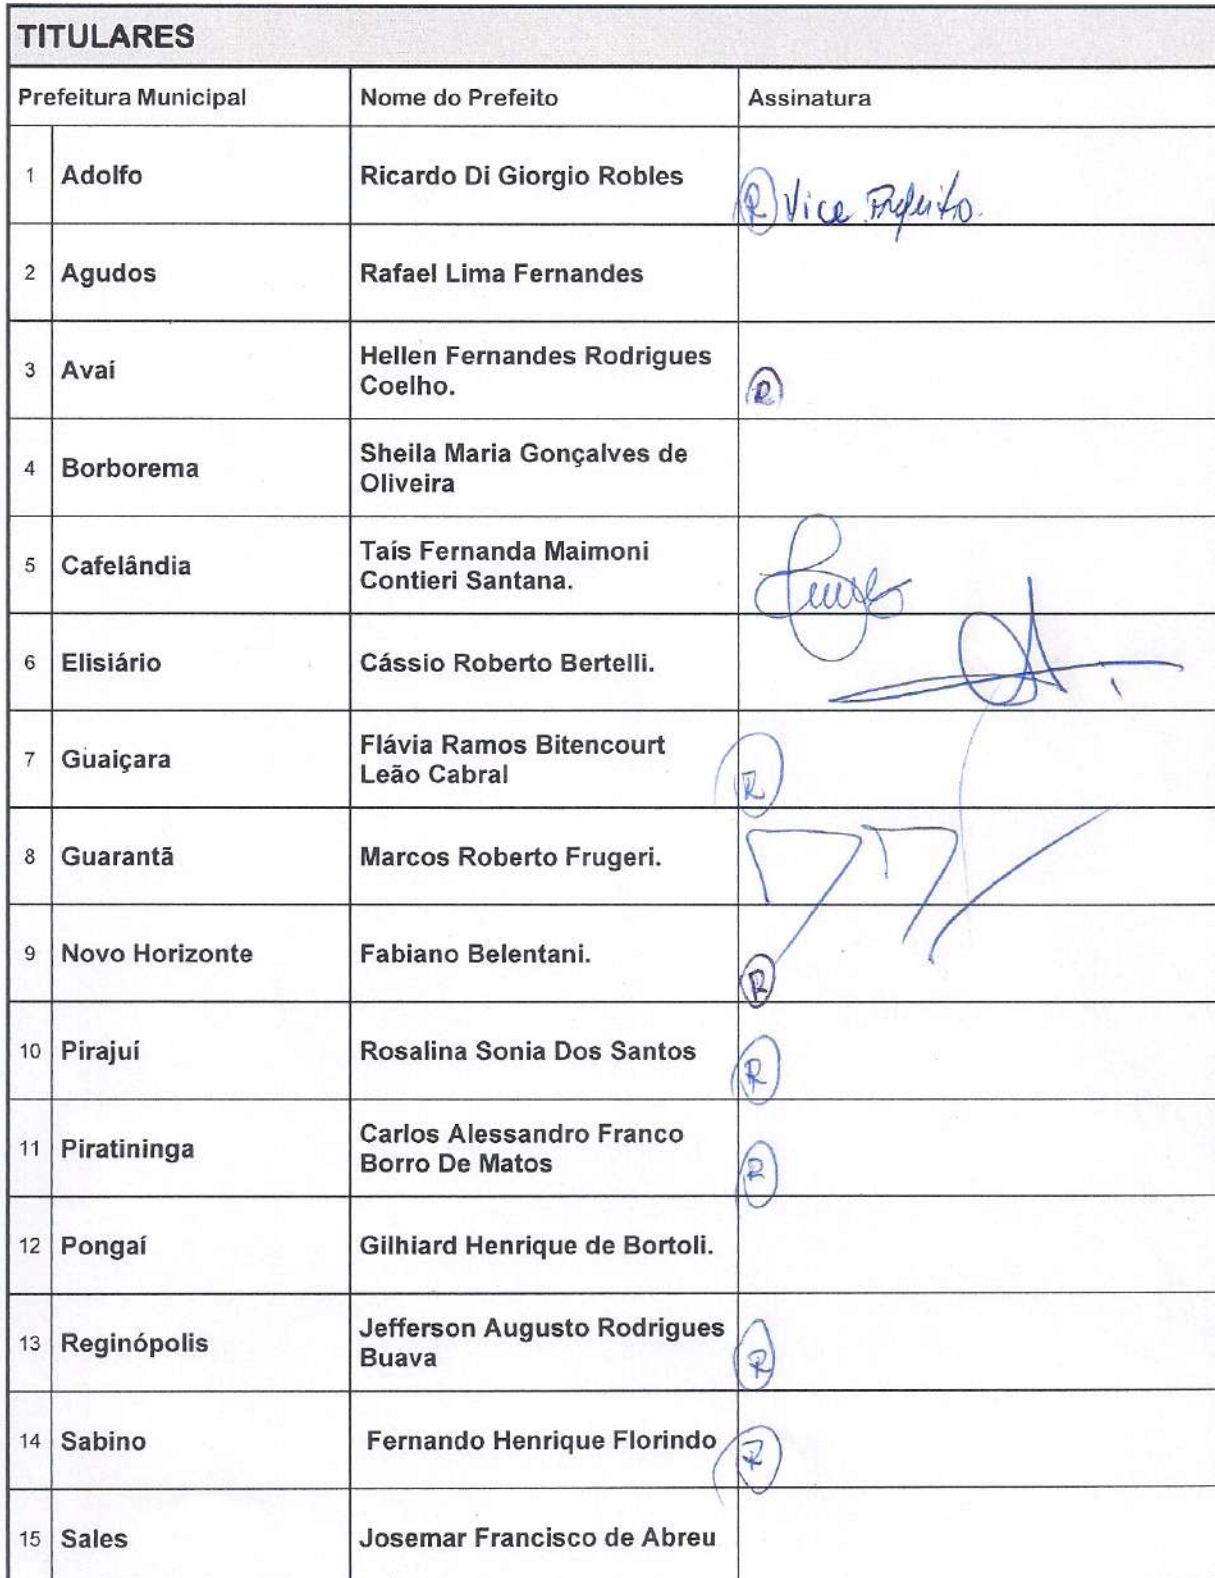 TITULARES
Prefeitura Municipal Nome do Prefeito Assinatura
1 Adolfo Ricardo Di Giorgio Robles R Vice Prefeito.
2 Agudos Rafael Lima Fernandes
3 Avaí Hellen Fernandes Rodrigues
Coelho. R
4 Borborema Sheila Maria Gonçalves de
Oliveira
5 Cafelândia Taís Fernanda Maimoni
Contieri Santana.
6 Elisiário Cássio Roberto Bertelli.
7 Guaiçara Flávia Ramos Bitencourt
Leão Cabral R
8 Guarantã Marcos Roberto Frugeri.
9 Novo Horizonte Fabiano Belentani. R
10 Pirajuí Rosalina Sonia Dos Santos R
11 Piratininga Carlos Alessandro Franco
Borro De Matos R
12 Pongaí Gilhiard Henrique de Bortoli.
13 Reginópolis Jefferson Augusto Rodrigues
Buava R
14 Sabino Fernando Henrique Florindo R
15 Sales Josemar Francisco de Abreu